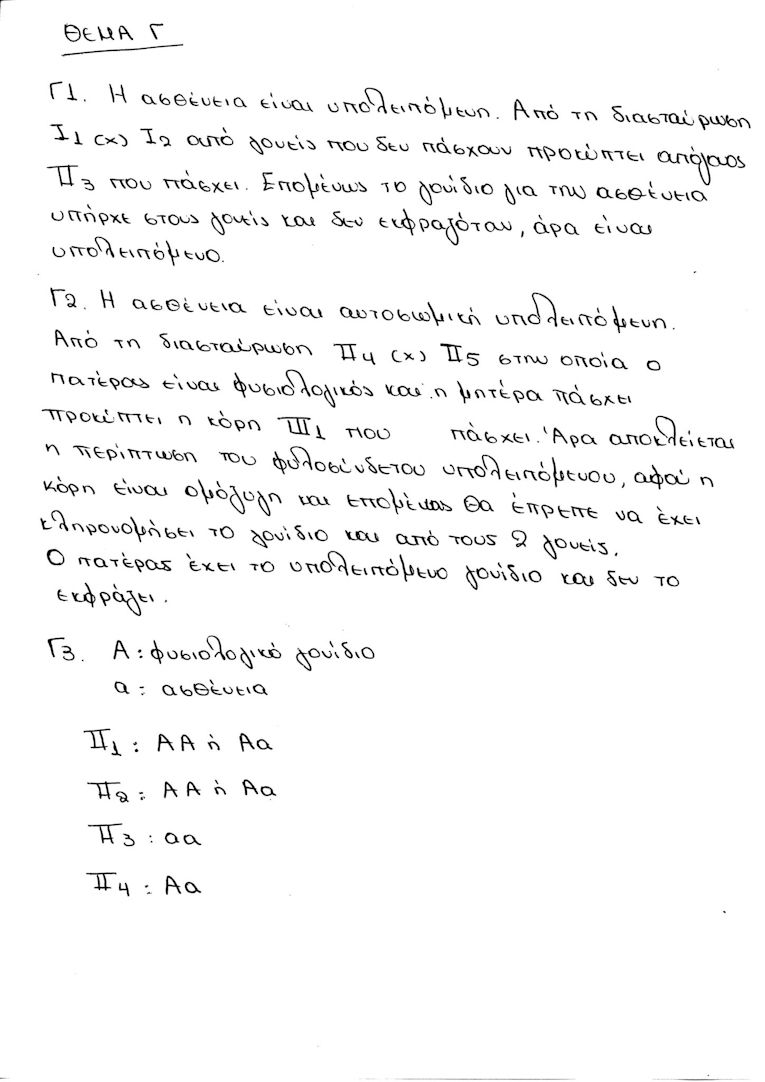 ΘΕΜΑ Γ
Γ1. Η ασθένεια είναι υπολειπόμενη. Από τη διασταύρωση
I1 (x) I2 από γονείς που δεν πάσχουν προκύπτει απόγονος
II3 που πάσχει. Επομένως το γονίδιο για την ασθένεια
υπήρχε στους γονείς και δεν εκφραζόταν, άρα είναι
υπολειπόμενο.
Γ2. Η ασθένεια είναι αυτοσωμική υπολειπόμενη.
Από τη διασταύρωση II4 (x) II5 στην οποία ο
πατέρας είναι φυσιολογικός και η μητέρα πάσχει
προκύπτει η κόρη III1 που πάσχει. Άρα αποκλείεται
η περίπτωση του φυλοσύνδετου υπολειπόμενου, αφού η
κόρη είναι ομόζυγη και επομένως θα έπρεπε να έχει
κληρονομήσει το γονίδιο και από τους 2 γονείς.
Ο πατέρας έχει το υπολειπόμενο γονίδιο και δεν το
εκφράζει.
Γ3. Α : φυσιολογικό γονίδιο
α : ασθένεια
II1 : ΑΑ ή Αα
II2 : ΑΑ ή Αα
II3 : αα
II4 : Αα